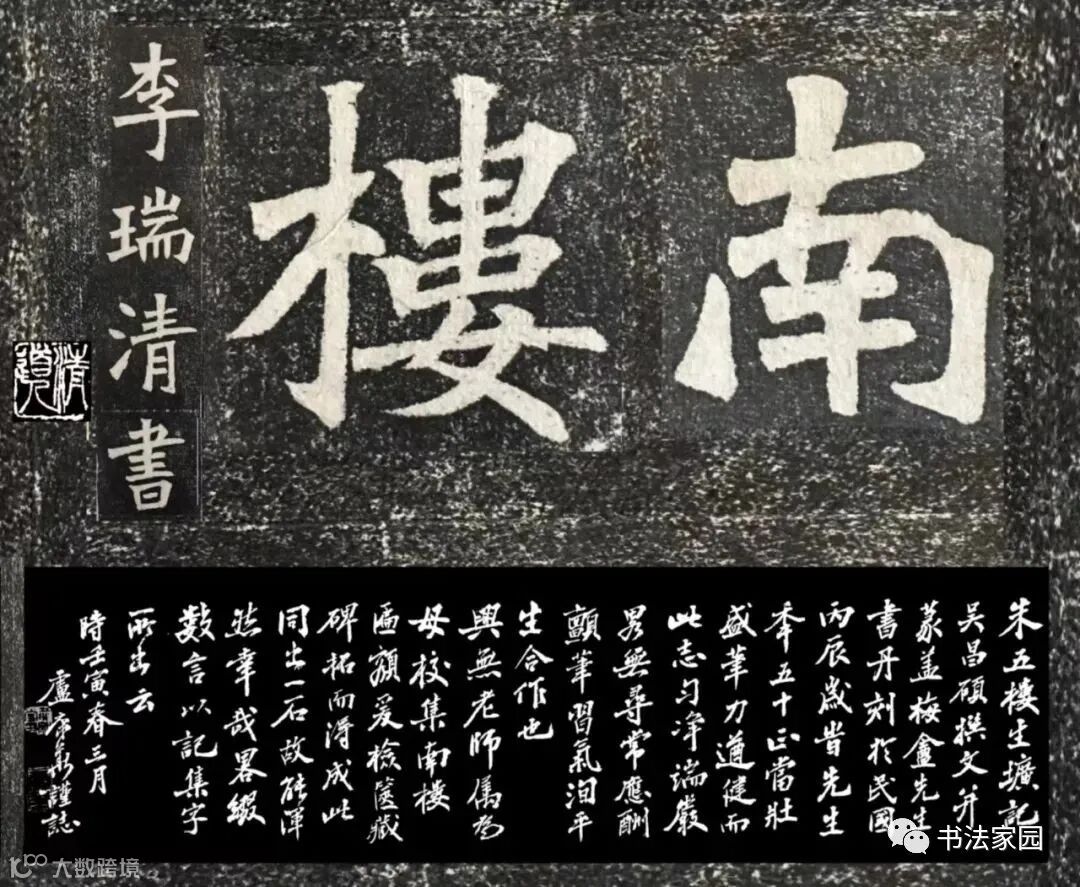 南樓
李瑞清書
清道人
朱五樓生壙記
吳昌碩撰文并
篆蓋梅盦先生
書丹刻於民國
丙辰歲時先生
年五十正當壯
盛筆力遒健而
此志勻淨端嚴
畧無尋常應酬
顫筆習氣洵平
生合作也
興無老師僞為
母校集南樓
匾額爰檢篋藏
碑拓而得成此
同出一石故能渾
然幸哉畧綴
數言以記集字
所出云
時壬寅春三月
盧康華謹誌
书法家园
大数跨境